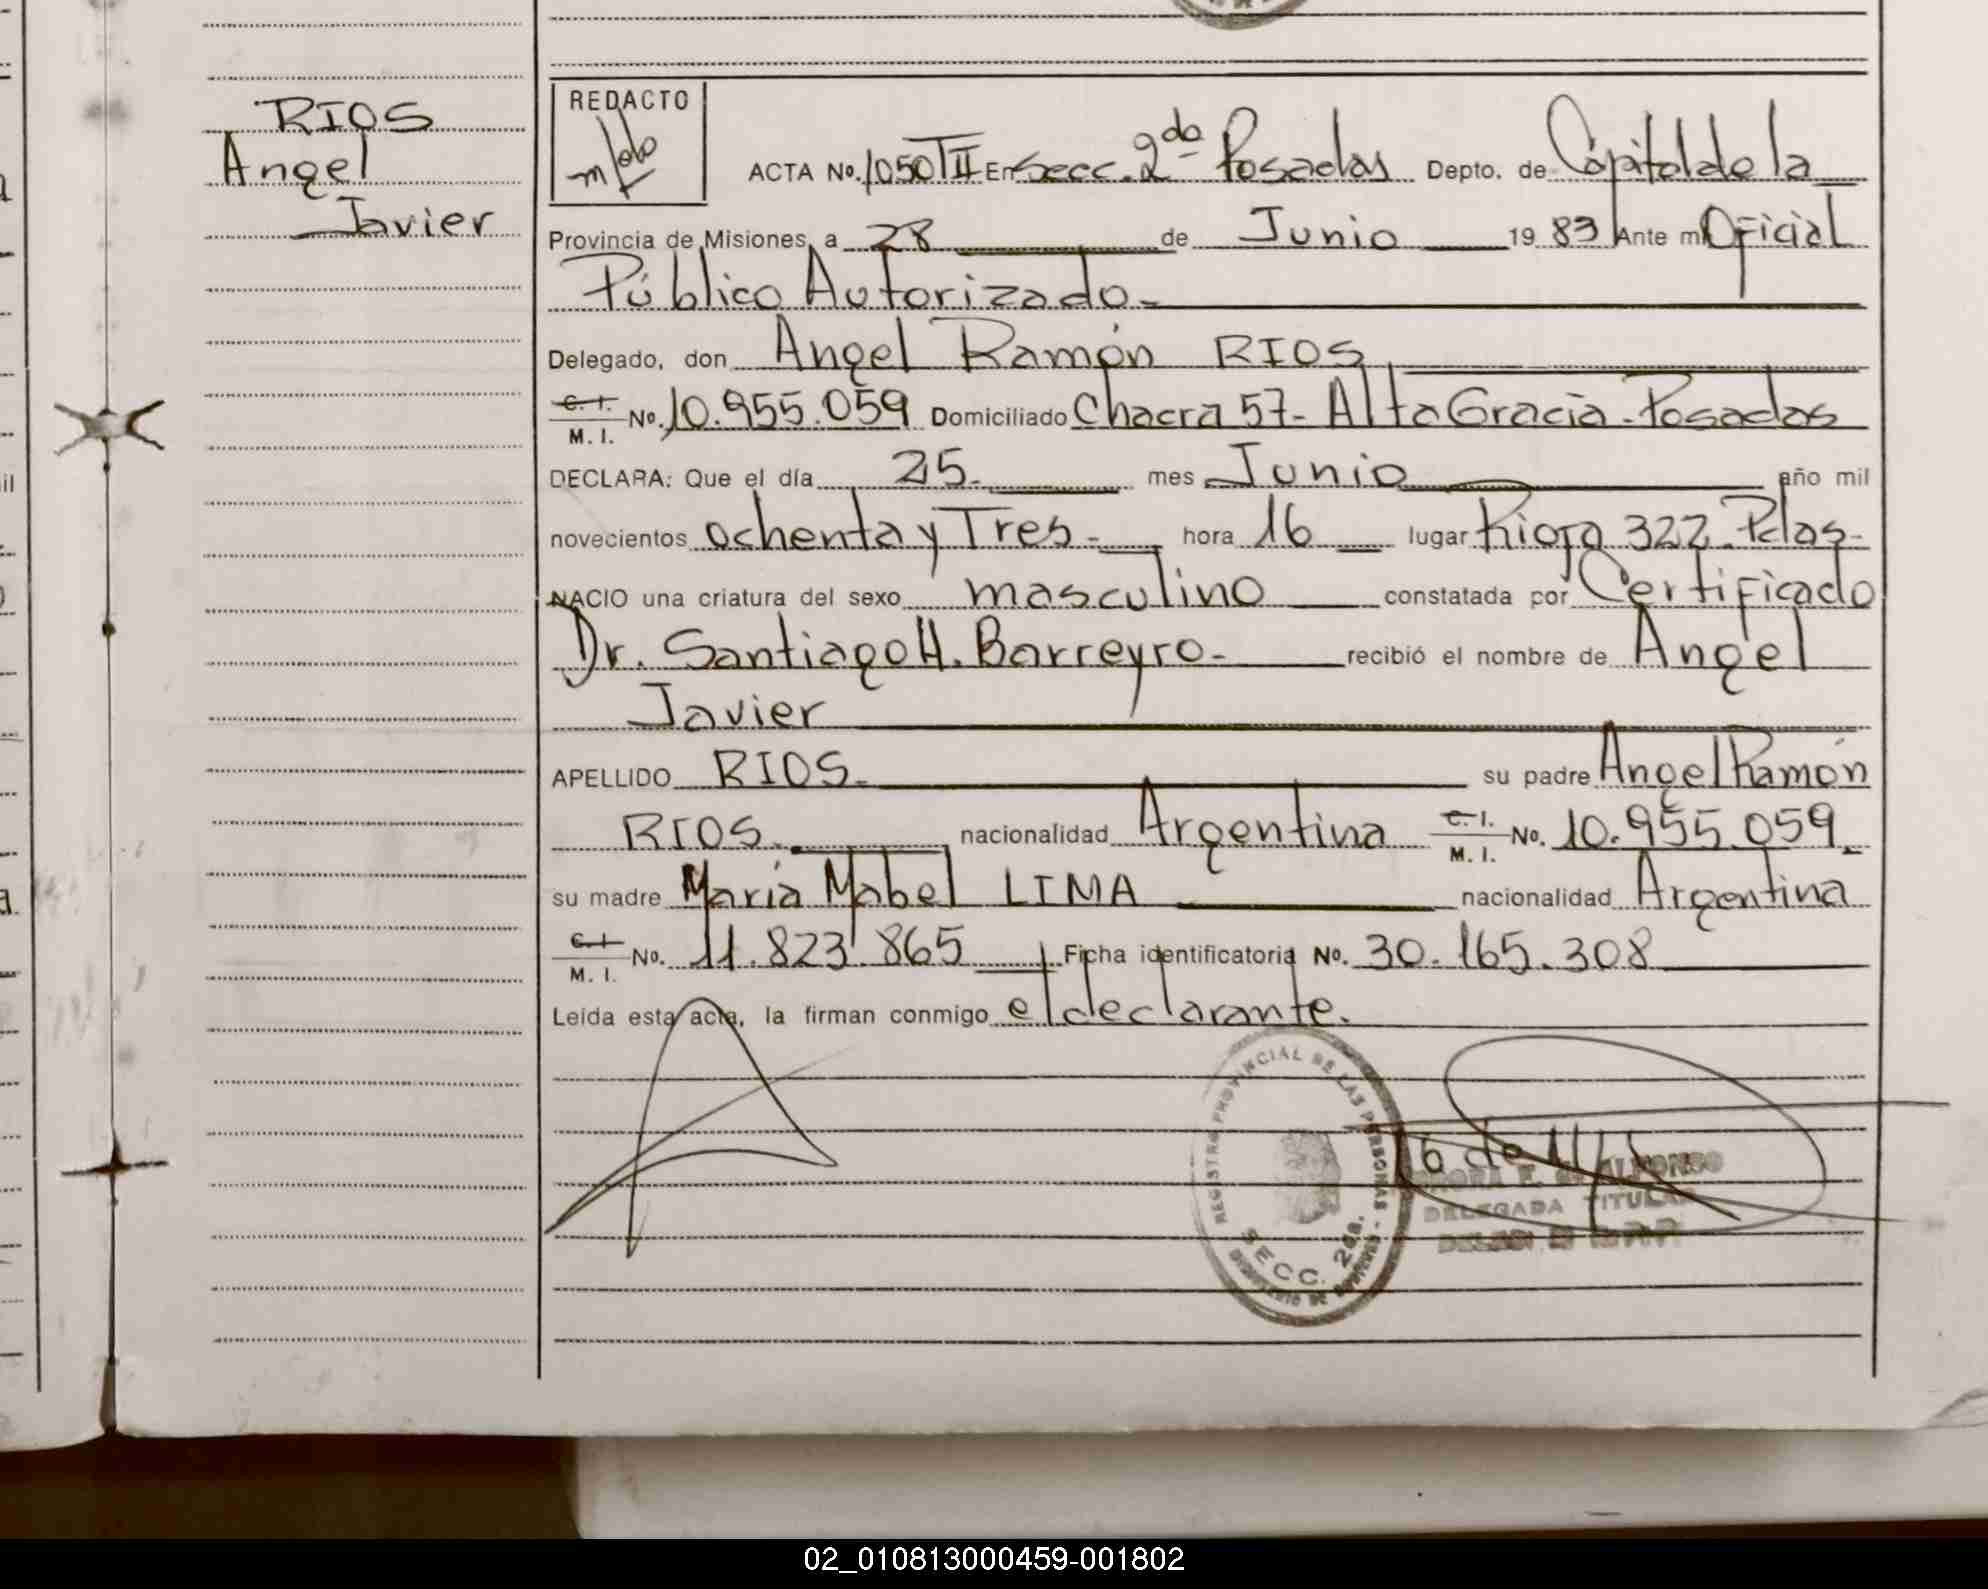 RIOS
Angel
Javier
REDACTO
ACTA No. 1050 TII En Secc. 2da Posadas Depto. de Capital de la
Provincia de Misiones, a 28 de Junio 19 83 Ante mi Oficial
Público Autorizado.-
Delegado, don Angel Ramón RIOS
C. I. M. I. No. 10.955.059 Domiciliado Chacra 57- Alta Gracia-Posadas
DECLARA: Que el día 25. mes Junio año mil
novecientos ochenta y Tres.- hora 16 lugar Rioja 322. Pdas-
NACIO una criatura del sexo masculino constatada por Certificado
Dr. Santiago H. Barreyro- recibió el nombre de Angel
Javier
APELLIDO RIOS.- su padre Angel Ramón
RIOS. nacionalidad Argentina C. I. M. I. No. 10.955.059.
su madre María Mabel LIMA nacionalidad Argentina
C. I. M. I. No. 11.823.865 Ficha identificatoria No. 30.165.308
Leída esta acta, la firman conmigo el declarante.
REGISTRO PROVINCIAL DE LAS PERSONAS -
SECC. 2da.
DELEGADA TITULAR
02_010813000459-001802